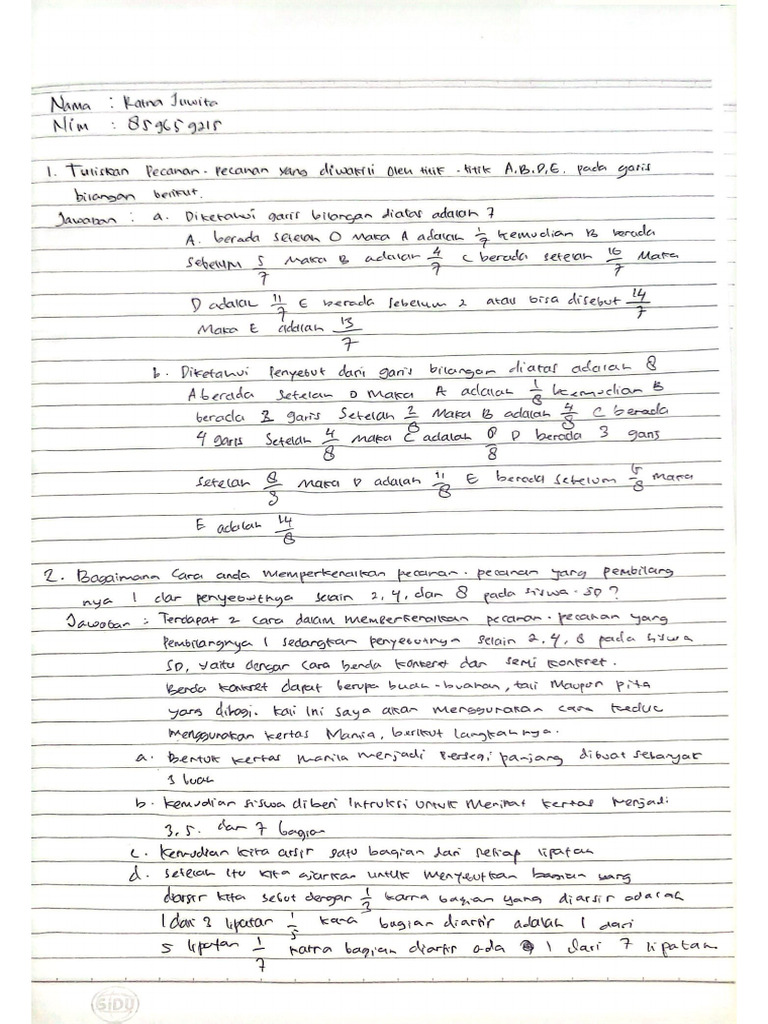 Nama : Ratna Juwita
Nim : 859659215
1. Tuliskan Pecahan-pecahan yang diwakili oleh titik-titik A,B,D,E, pada garis
bilangan berikut.
Jawaban : a. Diketahui garis bilangan diatas adalah 7
A. berada setelah 0 Maka A adalah 1/7 kemudian B berada
Sebelum 5/7 Maka B adalah 4/7 C berada setelah 10/7 Maka
D adalah 11/7 E berada sebelum 2 atau bisa disebut 14/7
Maka E adalah 13/7
b. Diketahui Penyebut dari garis bilangan diatas adalah 8
A berada setelah 0 Maka A adalah 1/8 kemudian B
berada 2 garis Setelah 2/8 Maka B adalah 4/8 C berada
4 garis Setelah 4/8 Maka C adalah 8/8 D berada 3 garis
setelah 8/8 Maka D adalah 11/8 E berada sebelum /8 maka
E adalah 14/8
2. Bagaimana Cara anda memperkenalkan pecahan-pecahan yang pembilang
nya 1 dar penyebutnya selain 2, 4, dan 8 pada siswa SD?
Jawaban : Terdapat 2 cara dalam memperkenalkan pecahan-pecahan yang
Pembilangnya 1 sedangkan penyebutnya selain 2, 4, 8 pada siswa
SD, yaitu dengan cara benda konkret dan semi konkret.
Benda konkret dapat berupa buah-buahan, tali Maupun pita
yang dibagi. Kali ini saya akan menggunakan cara kedua
menggunakan kertas Manila, berikut langkahnya.
a. Bentuk kertas manila menjadi Persegi panjang dibuat sebanyak
3 buah
b. Kemudian siswa diberi Intruksi untuk Melipat kertas Menjadi
3, 5. dan 7 bagian
c. Kemudian kita arsir satu bagian dari setiap lipatan
d. Setelah itu kita ajarkan untuk menyebutkan bagian yang
diarsir kita sebut dengan 1/3 karna bagian yang diarsir adalah
1 dari 3 lipatan 1/5 kana bagian diarsir adalah 1 dari
5 lipatan 1/7 karna bagian diarsir ada 1 dari 7 lipatan
SiDU